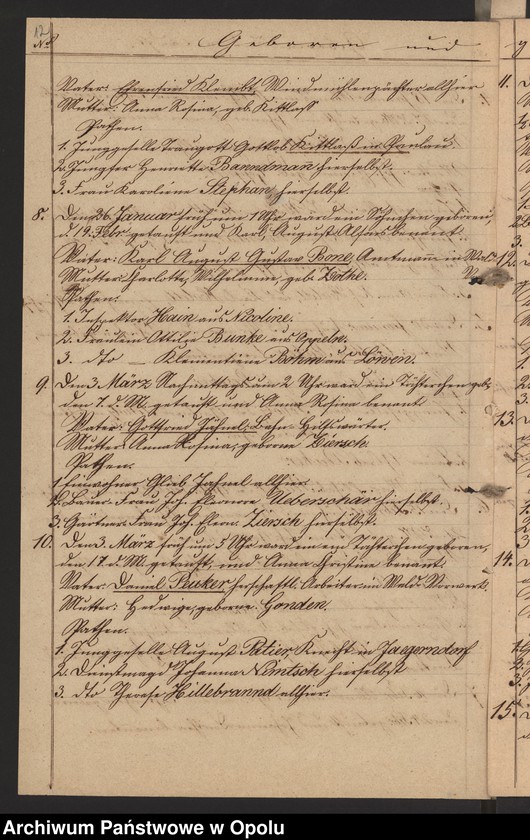 12
No
Geboren und
Vater: Ehrenfried Klembt, Windmühlenpächter allhier
Mutter: Anna Rosina, geb. Kittlaß
Pathen.
1. Junggeselle Traugott Gottlob Kittlaß in
2. Jungfer Henriette Banndman hierselbst.
3. Frau Karoline Stephan hierselbst.
8. Den 26 Januar früh um 1 Uhr ward ein Söhnchen geboren,
d. 19. Febr getauft und Karl August Alfons benannt.
Vater: Karl August Gustav Bone, Amtmann in
Mutter: Charlotte, Wilhelmine, geb. Zothe.
Pathen:
1. Inspektor Hain aus Nicoline.
2. Fräulein Ottilie Bunke aus Oppeln.
3. dto — Klementine Böhm aus Löwen.
9. Den 3 März Nachmittags um 2 Uhr ward ein Töchterchen geb.
den 7. d. M. getauft und Anna Rosina benant
Vater: Gottfried Jähnel, Bahn-Hilfswärter.
Mutter: Anna Rosina, geborne Ziersch.
Pathen.
1. Einwohner Glieb Jähnel allhier.
2. Bauer-Frau Joh. Eleonore Ueberschär hierselbst.
3. Gärtner-Frau Joh. Eleon. Ziersch hierselbst.
10. Den 3. März früh um 5 Uhr ward ein Töchterchen geboren,
den 17 d. M. getauft, und Anna Christine benant.
Vater: Daniel Peuker herschaftl. Arbeiter in Vorwerk.
Mutter: Hedwige, geborne Gonden.
Pathen.
1. Junggeselle August Petier Knecht in Jaegerndorf
2. Dienstmagd Johanna Nemtsch hierselbst
3. dto Therese Hillebrannd allhier.
11.
12.
13.
14.
15.
Archiwum Państwowe w Opolu